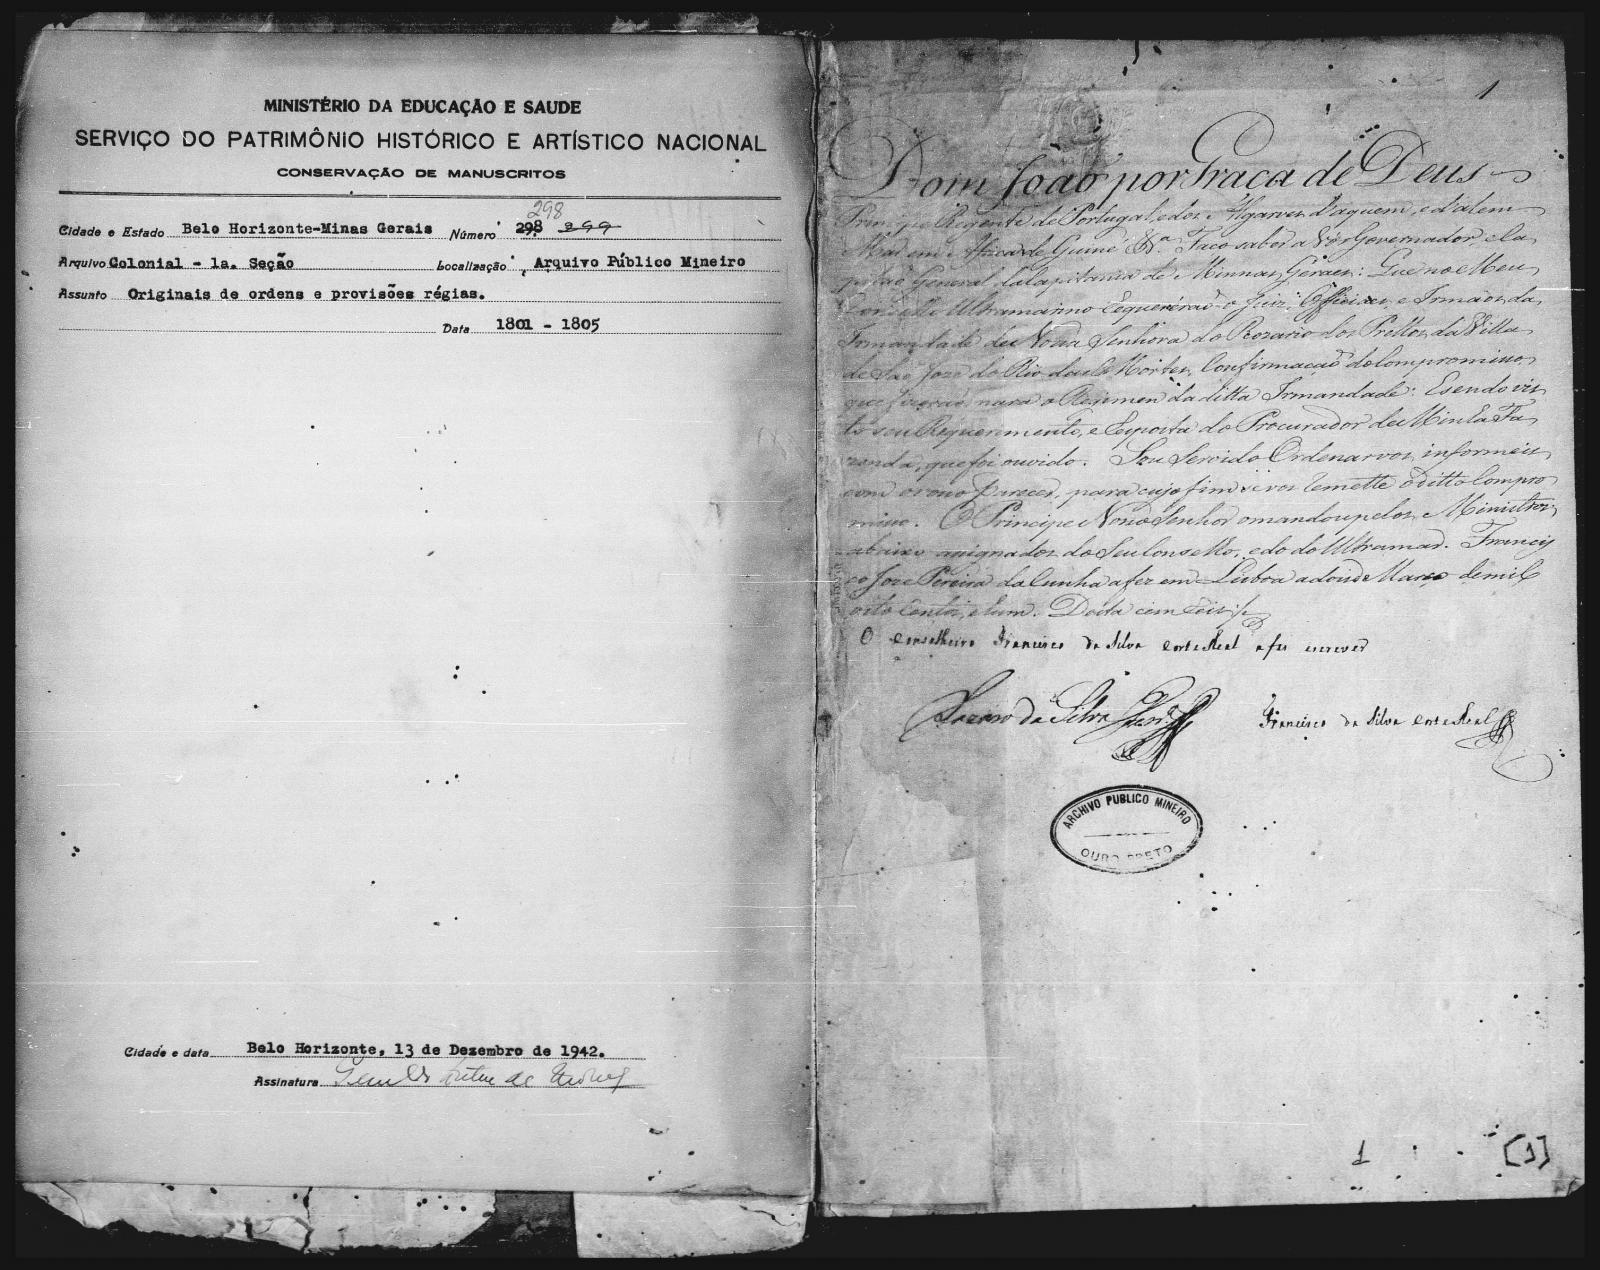 MINISTÉRIO DA EDUCAÇÃO E SAUDE
SERVIÇO DO PATRIMÔNIO HISTÓRICO E ARTÍSTICO NACIONAL
CONSERVAÇÃO DE MANUSCRITOS
298
Cidade e Estado Belo Horizonte-Minas Gerais Número 298 299
Arquivo Colonial - 1a. Seção Localização Arquivo Público Mineiro
Assunto Originais de ordens e provisões régias.
Data 1801 - 1805
Cidade e data Belo Horizonte, 13 de Dezembro de 1942.
Assinatura
1
Dom João por Graça de Deus
Principe Regente de Portugal, e dos Algarves d'aquem, e d'alem
Mar em Africa de Guiné &ª. Faço saber a Vós Governador, e Ca
pitão General da Capitania de Minnas Geraes: Que no Meu
Conselho Ultramarino Requererão o Juiz Officiaes, e Irmãos da
Irmandade de Nossa Senhora do Rozario dos Pretos da Villa
de São Joze do Rio das Mortes, Confirmação do Compromisso,
que fizerão para o Regimen da ditta Irmandade: E sendo vis
to seu Requerimento, e Resposta do Procurador de Minha Fa
zenda, que foi ouvido. Sou Servido Ordenarvos informeis
com o vosso parecer, para cujo fim se vos remette o ditto Compro
misso. O Principe Nosso Senhor o mandou pelos Ministros
abaixo asignados do Seu Conselho, e do do Ultramar. Francis
co Joze Pereira da Cunha a fez em Lisboa a dous de Março de mil
oito centos, e hum. Desta cem reis
O Conselheiro Francisco da Silva Corte Real a fes escrever
Lazaro da Silva Francisco da Silva Corte Real
ARCHIVO PUBLICO MINEIRO
OURO PRETO
1 [1]